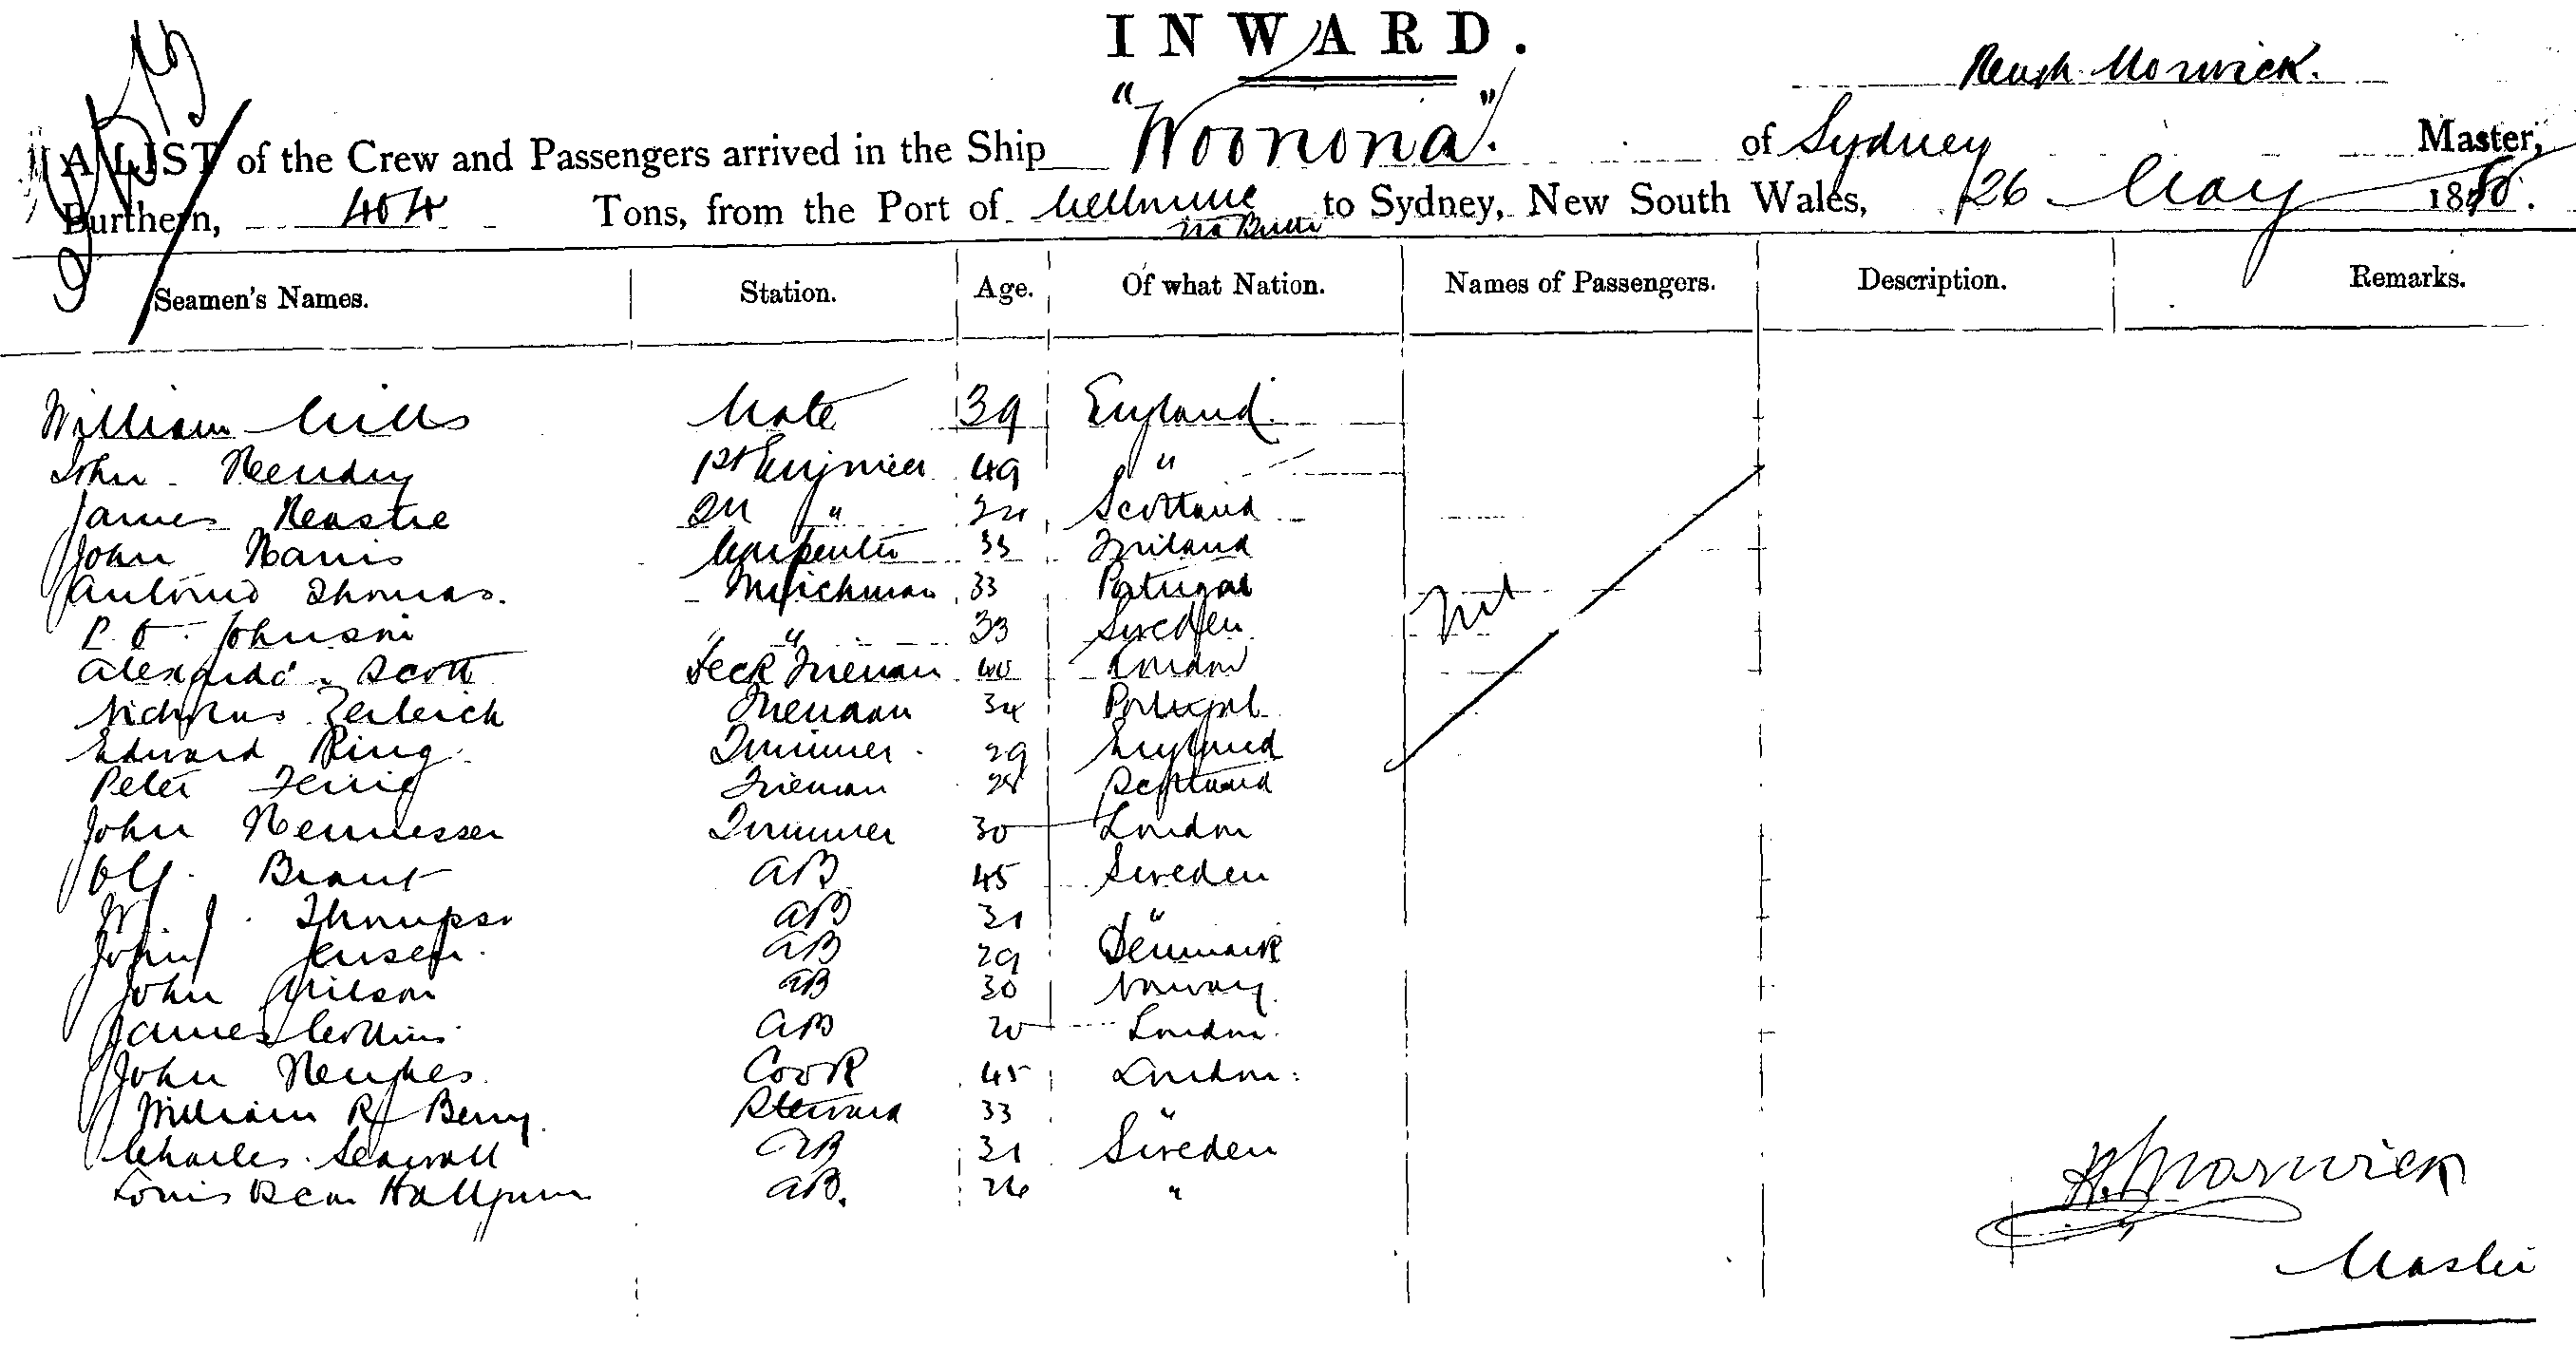 INWARD.
Hugh Morwick.
A LIST of the Crew and Passengers arrived in the Ship "Woonona". of Sydney Master,
Burthern, 404 Tons, from the Port of Melbourne to Sydney, New South Wales, 26 May 188
via
Seamen's Names. Station. Age. Of what Nation. Names of Passengers. Description. Remarks.
William Mills Mate 39 England
John Hendry 1st Engineer 49 "
James Heastie 2n " Scotland
John Harris Carpenter 33 Ireland
Antonio Thomas. Winchman 33 Portugal
P. O. Johnson " " 33 Sweden
Nil
Alexander Scott Deck Fireman 40 London
Nicholas Fireman 34 Portugal
Edward Ring Trimmer 29 England
Peter Fireman 28 Scotland
John Hennesser Trimmer 30 London
Olf Brant AB 45 Sweden
W. J. Thompson AB 31 "
John Jensen AB 29 Denmark
John Wilson AB 30 Norway
James Collins AB 20 London
John Hughes Cook 45 London
William R Berry Steward 33 "
Charles Seawall AB 31 Sweden
Louis AB. 26 "
H. Morwick
Master